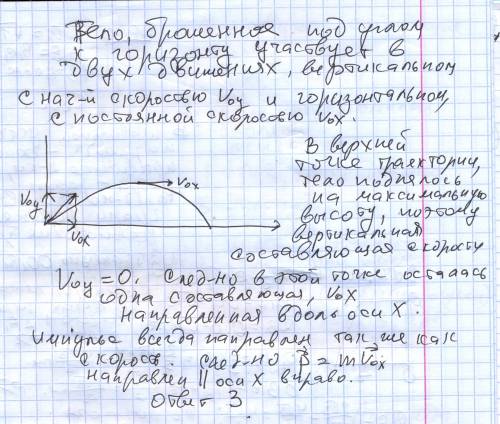 Тело, брошенное под углом
к горизонту участвует в
двух движениях, вертикальном
с нач-й скоростью V₀y и горизонтальном,
с постоянной скоростью V₀x.
В верхней
точке траектории,
тело поднялось
на максимальную
высоту, поэтому
вертикальная
составляющая скорости
V₀y
V₀x
V₀x
V₀y = 0. След-но в этой точке осталась
одна составляющая, V₀x
направленная вдоль оси X.
Импульс всегда направлен так же как
скорость. След-но p⃗ = mV⃗₀x
направлен || оси X вправо.
Ответ 3